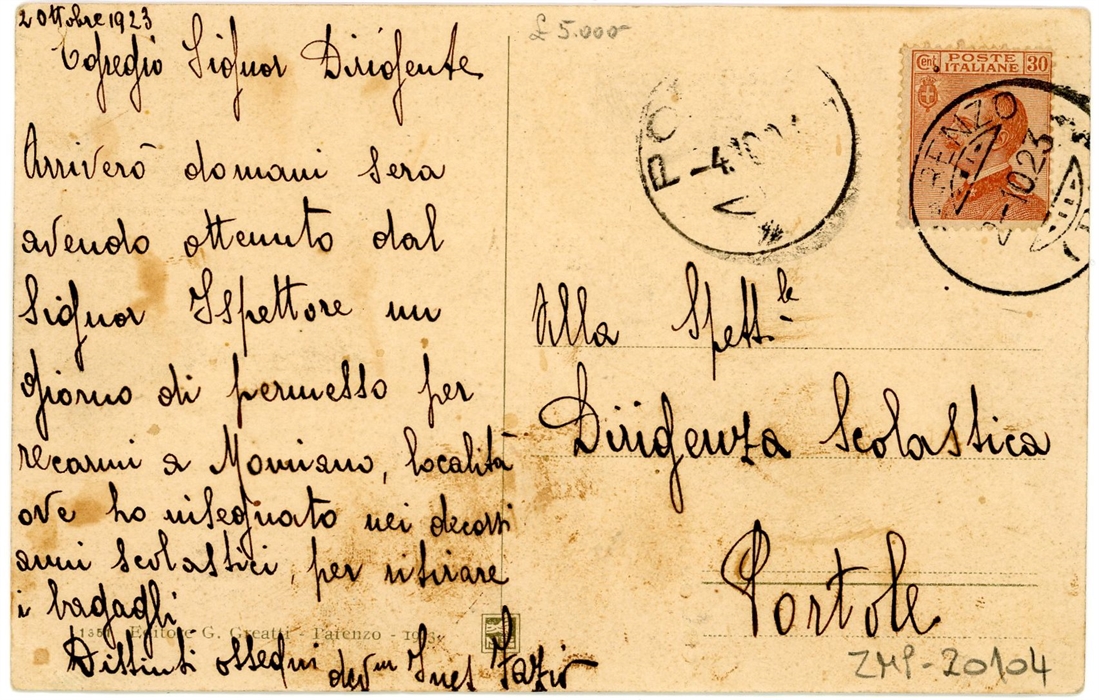 2 Ottobre 1923
Egregio Signor Dirigente
Arriverò domani sera
avendo ottenuto dal
Signor Ispettore un
giorno di permesso per
recarmi a Momiano, località
ove ho insegnato nei decorsi
anni scolastici, per ritirare
i bagagli.
Distinti ossequi dev.ma Ines Fazio
1381 Editore G. Greatti - Parenzo
£ 5.000
Cent. POSTE ITALIANE 30
PARENZO
2-10 23
-4.10
Alla Spett.le
Dirigenza Scolastica
Portole
ZMP-20104